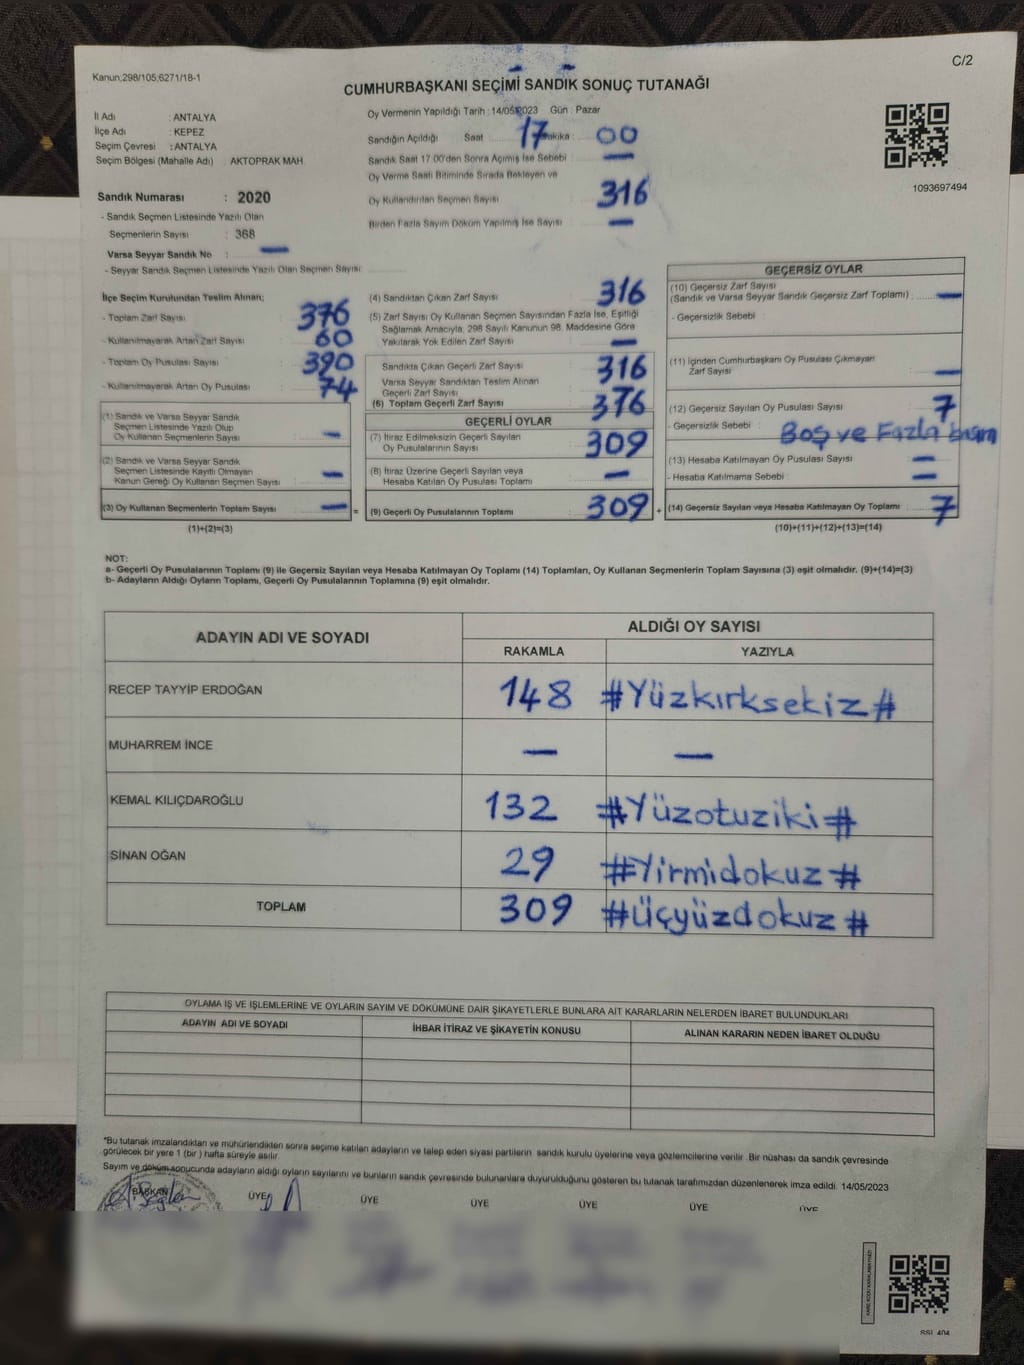 C/2
Kanun;298/105;6271/18-1
CUMHURBAŞKANI SEÇİMİ SANDIK SONUÇ TUTANAĞI
İl Adı : ANTALYA
İlçe Adı : KEPEZ
Seçim Çevresi : ANTALYA
Seçim Bölgesi (Mahalle Adı) : AKTOPRAK MAH.
Sandık Numarası : 2020
- Sandık Seçmen Listesinde Yazılı Olan
Seçmenlerin Sayısı : 368
Varsa Seyyar Sandık No : —
- Seyyar Sandık Seçmen Listesinde Yazılı Olan Seçmen Sayısı
Oy Vermenin Yapıldığı Tarih : 14/05/2023 Gün : Pazar
Sandığın Açıldığı Saat 17 Dakika : 00
Sandık Saat 17.00'den Sonra Açılmış İse Sebebi : —
Oy Verme Saati Bitiminde Sırada Bekleyen ve
Oy Kullandırılan Seçmen Sayısı : 316
Birden Fazla Sayım Döküm Yapılmış İse Sayısı : —
1093697494
İlçe Seçim Kurulundan Teslim Alınan;
- Toplam Zarf Sayısı : 376
- Kullanılmayarak Artan Zarf Sayısı : 60
- Toplam Oy Pusulası Sayısı : 390
- Kullanılmayarak Artan Oy Pusulası : 74
(1) Sandık ve Varsa Seyyar Sandık
Seçmen Listesinde Yazılı Olup
Oy Kullanan Seçmenlerin Sayısı : —
(2) Sandık ve Varsa Seyyar Sandık
Seçmen Listesinde Kayıtlı Olmayan
Kanun Gereği Oy Kullanan Seçmen Sayısı : —
(3) Oy Kullanan Seçmenlerin Toplam Sayısı : — =
(1)+(2)=(3)
(4) Sandıktan Çıkan Zarf Sayısı : 316
(5) Zarf Sayısı Oy Kullanan Seçmen Sayısından Fazla İse, Eşitliği
Sağlamak Amacıyla, 298 Sayılı Kanunun 98. Maddesine Göre
Yakılarak Yok Edilen Zarf Sayısı : —
Sandıkta Çıkan Geçerli Zarf Sayısı : 316
Varsa Seyyar Sandıktan Teslim Alınan
Geçerli Zarf Sayısı
(6) Toplam Geçerli Zarf Sayısı : 376
GEÇERLİ OYLAR
(7) İtiraz Edilmeksizin Geçerli Sayılan
Oy Pusulalarının Sayısı : 309
(8) İtiraz Üzerine Geçerli Sayılan veya
Hesaba Katılan Oy Pusulası Toplamı : —
(9) Geçerli Oy Pusulalarının Toplamı : 309 +
GEÇERSİZ OYLAR
(10) Geçersiz Zarf Sayısı
(Sandık ve Varsa Seyyar Sandık Geçersiz Zarf Toplamı) : —
- Geçersizlik Sebebi :
(11) İçinden Cumhurbaşkanı Oy Pusulası Çıkmayan
Zarf Sayısı : —
(12) Geçersiz Sayılan Oy Pusulası Sayısı : 7
- Geçersizlik Sebebi : Boş ve Fazla basım
(13) Hesaba Katılmayan Oy Pusulası Sayısı : —
- Hesaba Katılmama Sebebi : —
(14) Geçersiz Sayılan veya Hesaba Katılmayan Oy Toplamı : 7
(10)+(11)+(12)+(13)=(14)
NOT:
a- Geçerli Oy Pusulalarının Toplamı (9) ile Geçersiz Sayılan veya Hesaba Katılmayan Oy Toplamı (14) Toplamları, Oy Kullanan Seçmenlerin Toplam Sayısına (3) eşit olmalıdır. (9)+(14)=(3)
b- Adayların Aldığı Oyların Toplamı, Geçerli Oy Pusulalarının Toplamına (9) eşit olmalıdır.
ADAYIN ADI VE SOYADI ALDIĞI OY SAYISI
RAKAMLA YAZIYLA
RECEP TAYYİP ERDOĞAN 148 #Yüzkırksekiz#
MUHARREM İNCE — —
KEMAL KILIÇDAROĞLU 132 #Yüzotuziki#
SİNAN OĞAN 29 #Yirmidokuz#
TOPLAM 309 #üçyüzdokuz#
OYLAMA İŞ VE İŞLEMLERİNE VE OYLARIN SAYIM VE DÖKÜMÜNE DAİR ŞİKAYETLERLE BUNLARA AİT KARARLARIN NELERDEN İBARET BULUNDUKLARI
ADAYIN ADI VE SOYADI İHBAR İTİRAZ VE ŞİKAYETİN KONUSU ALINAN KARARIN NEDEN İBARET OLDUĞU
*Bu tutanak imzalandıktan ve mühürlendikten sonra seçime katılan adayların ve talep eden siyasi partilerin sandık kurulu üyelerine veya gözlemcilerine verilir. Bir nüshası da sandık çevresinde
görülecek bir yere 1 (bir ) hafta süreyle asılır.
Sayım ve döküm sonucunda adayların aldığı oyların sayılarını ve bunların sandık çevresinde bulunanlara duyurulduğunu gösteren bu tutanak tarafımızdan düzenlenerek imza edildi. 14/05/2023
BAŞKAN ÜYE ÜYE ÜYE ÜYE ÜYE ÜYE
SSI_404